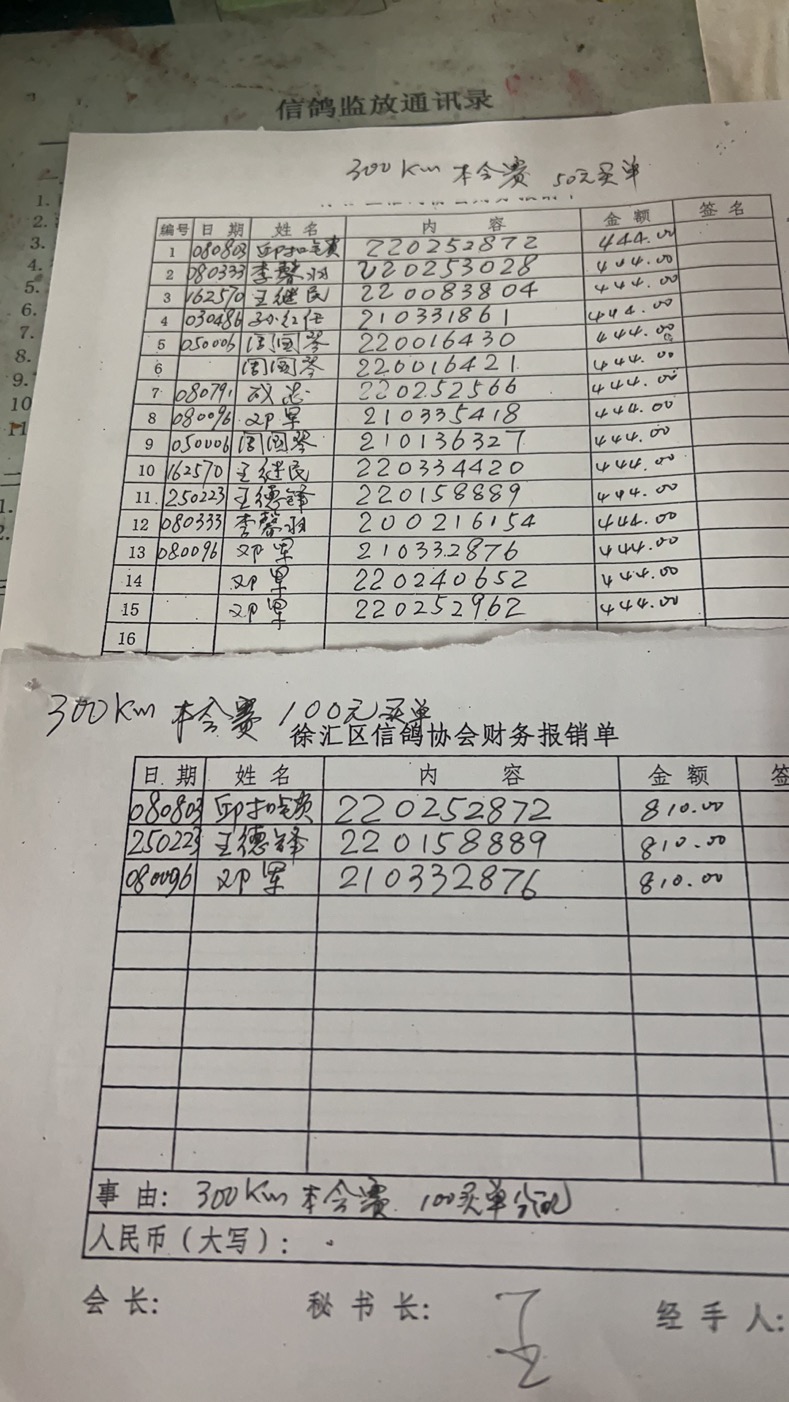 信鸽监放通讯录
1.
2.
3.
4.
5.
6.
7.
8.
9.
10
11
二
1.
2.
300Km 本会赛 50元买单
编号 日期 姓名 内容 金额 签名
1 080803 220252872 444.00
2 080333 李馨羽 220253028 444.00
3 162570 王继民 220083804 444.00
4 030486 孙红伍 210331861 444.00
5 050006 周国琴 220016430 444.00
6 周国琴 220016421 444.00
7 080791 220252566 444.00
8 080096 邓军 210335418 444.00
9 050006 周国琴 210136327 444.00
10 162570 王继民 220334420 444.00
11 250223 王德锋 220158889 444.00
12 080333 李馨羽 200216154 444.00
13 080096 邓军 210332876 444.00
14 邓军 220240652 444.00
15 邓军 220252962 444.00
16
300Km 本会赛 100元买单
徐汇区信鸽协会财务报销单
日期 姓名 内容 金额 签
080803 220252872 810.00
250223 王德锋 220158889 810.00
080096 邓军 210332876 810.00
事由: 300Km 本会赛 100买单分配
人民币(大写):
会长: 秘书长: 经手人: